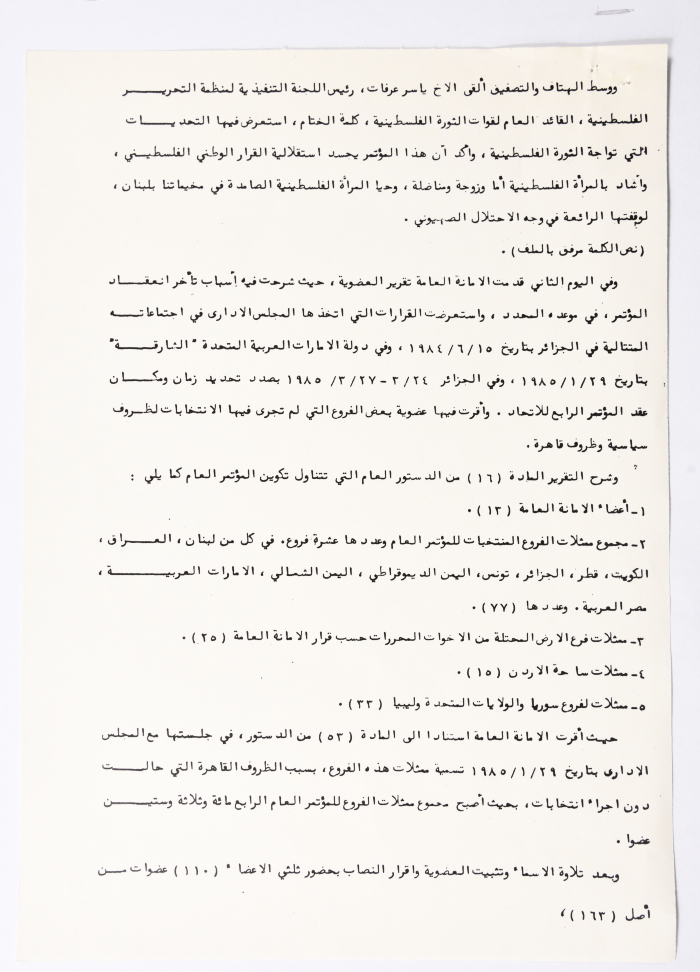 ووسط الهتاف والتصفيق ألقى الاخ ياسر عرفات، رئيس اللجنة التنفيذية لمنظمة التحريـــر
الفلسطينية ، القائد العام لقوات الثورة الفلسطينية ، كلمة الختام ، استعرض فيها التحديــات
التي تواجة الثورة الفلسطينية ، وأكد أن هذا المؤتمر يجسد استقلالية القرار الوطني الفلسطيني ،
وأشاد بالمرأة الفلسطينية أما وزوجة ومناضلة ، وحيا المرأة الفلسطينية الصامدة في مخيماتنا بلبنان ،
لوقفتها الرائعة في وجه الاحتلال الصهيوني .
(نص الكلمة مرفق بالملف) .
وفي اليوم الثاني قدمت الامانة العامة تقرير العضوية ، حيث شرحت فيه أسباب تأخر انعقــاد
المؤتمر ، في موعده المحدد ، واستعرضت القرارات التي اتخذها المجلس الادارى في اجتماعاتــه
المتتالية في الجزائر بتاريخ ١٩٨٤/٦/١٥ ، وفي دولة الامارات العربية المتحدة " الشارقــة "
بتاريخ ١٩٨٥/١/٢٩ ، وفي الجزائر ٣/٢٤ - ١٩٨٥/٣/٢٧ بصدد تحديد زمان ومكــان
عقد المؤتمر الرابع للاتحاد . وأقرت فيها عضوية بعض الفروع التي لم تجرى فيها الانتخابات لظــروف
سياسية وظروف قاهرة .
وشرح التقرير المادة (١٦) من الدستور العام التي تتناول تكوين المؤتمر العام كما يلي :
١ـ أعضاء الامانة العامة (١٣) .
٢ـ مجموع ممثلات الفروع المنتخبات للمؤتمر العام وعددها عشرة فروع. في كل من لبنان ، العــراق ،
الكويت، قطر ، الجزائر ، تونس، اليمن الديموقراطي ، اليمن الشمالي ، الامارات العربيــة ،
مصر العربية . وعددها (٧٧) .
٣ـ ممثلات فرع الارض المحتلة من الاخوات المحررات حسب قرار الامانة العامة (٢٥) .
٤ـ ممثلات ساحة الاردن (١٥) .
٥ـ ممثلات لفروع سوريا والولايات المتحدة وليبيا (٣٣) .
حيث أقرت الامانة العامة استنادا الى المادة (٥٣) من الدستور ، في جلستها مع المجلس
الادارى بتاريخ ١٩٨٥/١/٢٩ تسمية ممثلات هذه الفروع، بسبب الظروف القاهرة التي حالــت
دون اجراء انتخابات، بحيث أصبح مجموع ممثلات الفروع للمؤتمر العام الرابع مائة وثلاثة وستيــن
عضوا .
وبعد تلاوة الاسماء وتثبيت العضوية واقرار النصاب بحضور ثلثي الاعضاء (١١٠) عضوات مــن
أصل (١٦٣)،